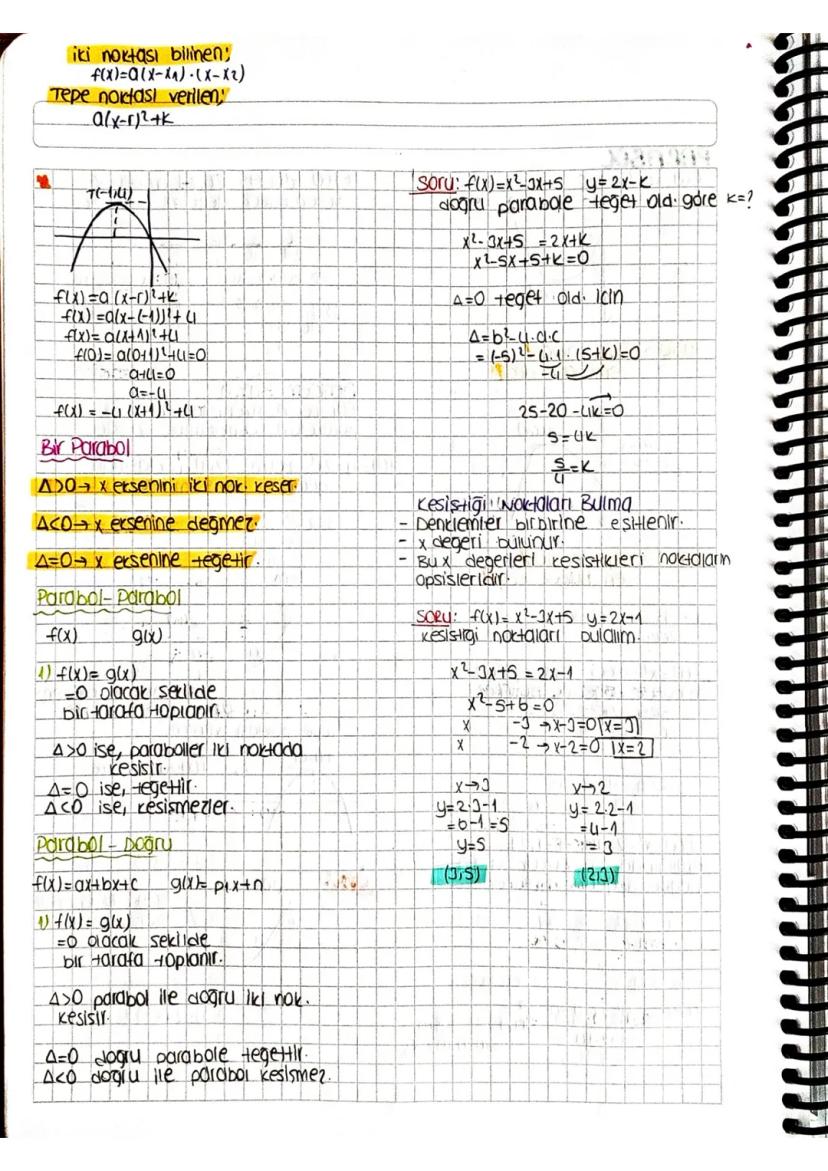 iki noktası bilinen;
f(x)=a(x-x1)·(x-x2)
Tepe noktası verilen;
a(x-r)²+k
T(-1,4)
f(x)=a(x-r)²+k
f(x)=a(x-(-1))²+4
f(x)=a(x+1)²+4
f(0)=a(0+1)²+4=0
a+4=0
a=-4
f(x)=-4(x+1)²+4
Bir Parabol
Δ>0→x eksenini iki nok. keser.
Δ<0→x eksenine değmez.
Δ=0→x eksenine teğettir.
Parabol-Parabol
f(x) g(x)
1) f(x)=g(x)
=0 olacak şekilde
bir tarafa toplanır.
Δ>0 ise, paraboller iki noktada
kesişir.
Δ=0 ise, teğettir.
Δ<0 ise, kesişmezler.
Parabol-Doğru
f(x)=ax+bx+c g(x)=px+n
1) f(x)=g(x)
=0 olacak şekilde
bir tarafa toplanır.
Δ>0 parabol ile doğru iki nok.
kesişir.
Δ=0 doğru parabole teğettir.
Δ<0 doğru ile parabol kesişmez.
Soru: f(x)=x²-3x+5 y=2x-k
doğru parabole teğet old. göre k=?
x²-3x+5=2x+k
x²-5x+5+k=0
Δ=0 teğet old. için
Δ=b²-4.a.c
=(-5)²-4.1.(5+k)=0
-4
25-20-4k=0
5=4k
5/4=k
Kesiştiği Noktaları Bulma
- Denklemler birbirine eşitlenir.
- x değeri bulunur.
- Bu x değerleri kesiştikleri noktaların
opsisleridir.
SORU: f(x)=x²-3x+5 y=2x-1
kesiştiği noktaları bulalım.
x²-3x+5=2x-1
x²-5+6=0
x -3→x-3=0 x=3
x -2→x-2=0 x=2
x→3 x→2
y=2.3-1 y=2.2-1
=6-1=5 =4-1
y=5 =3
(3,5) (2,3)